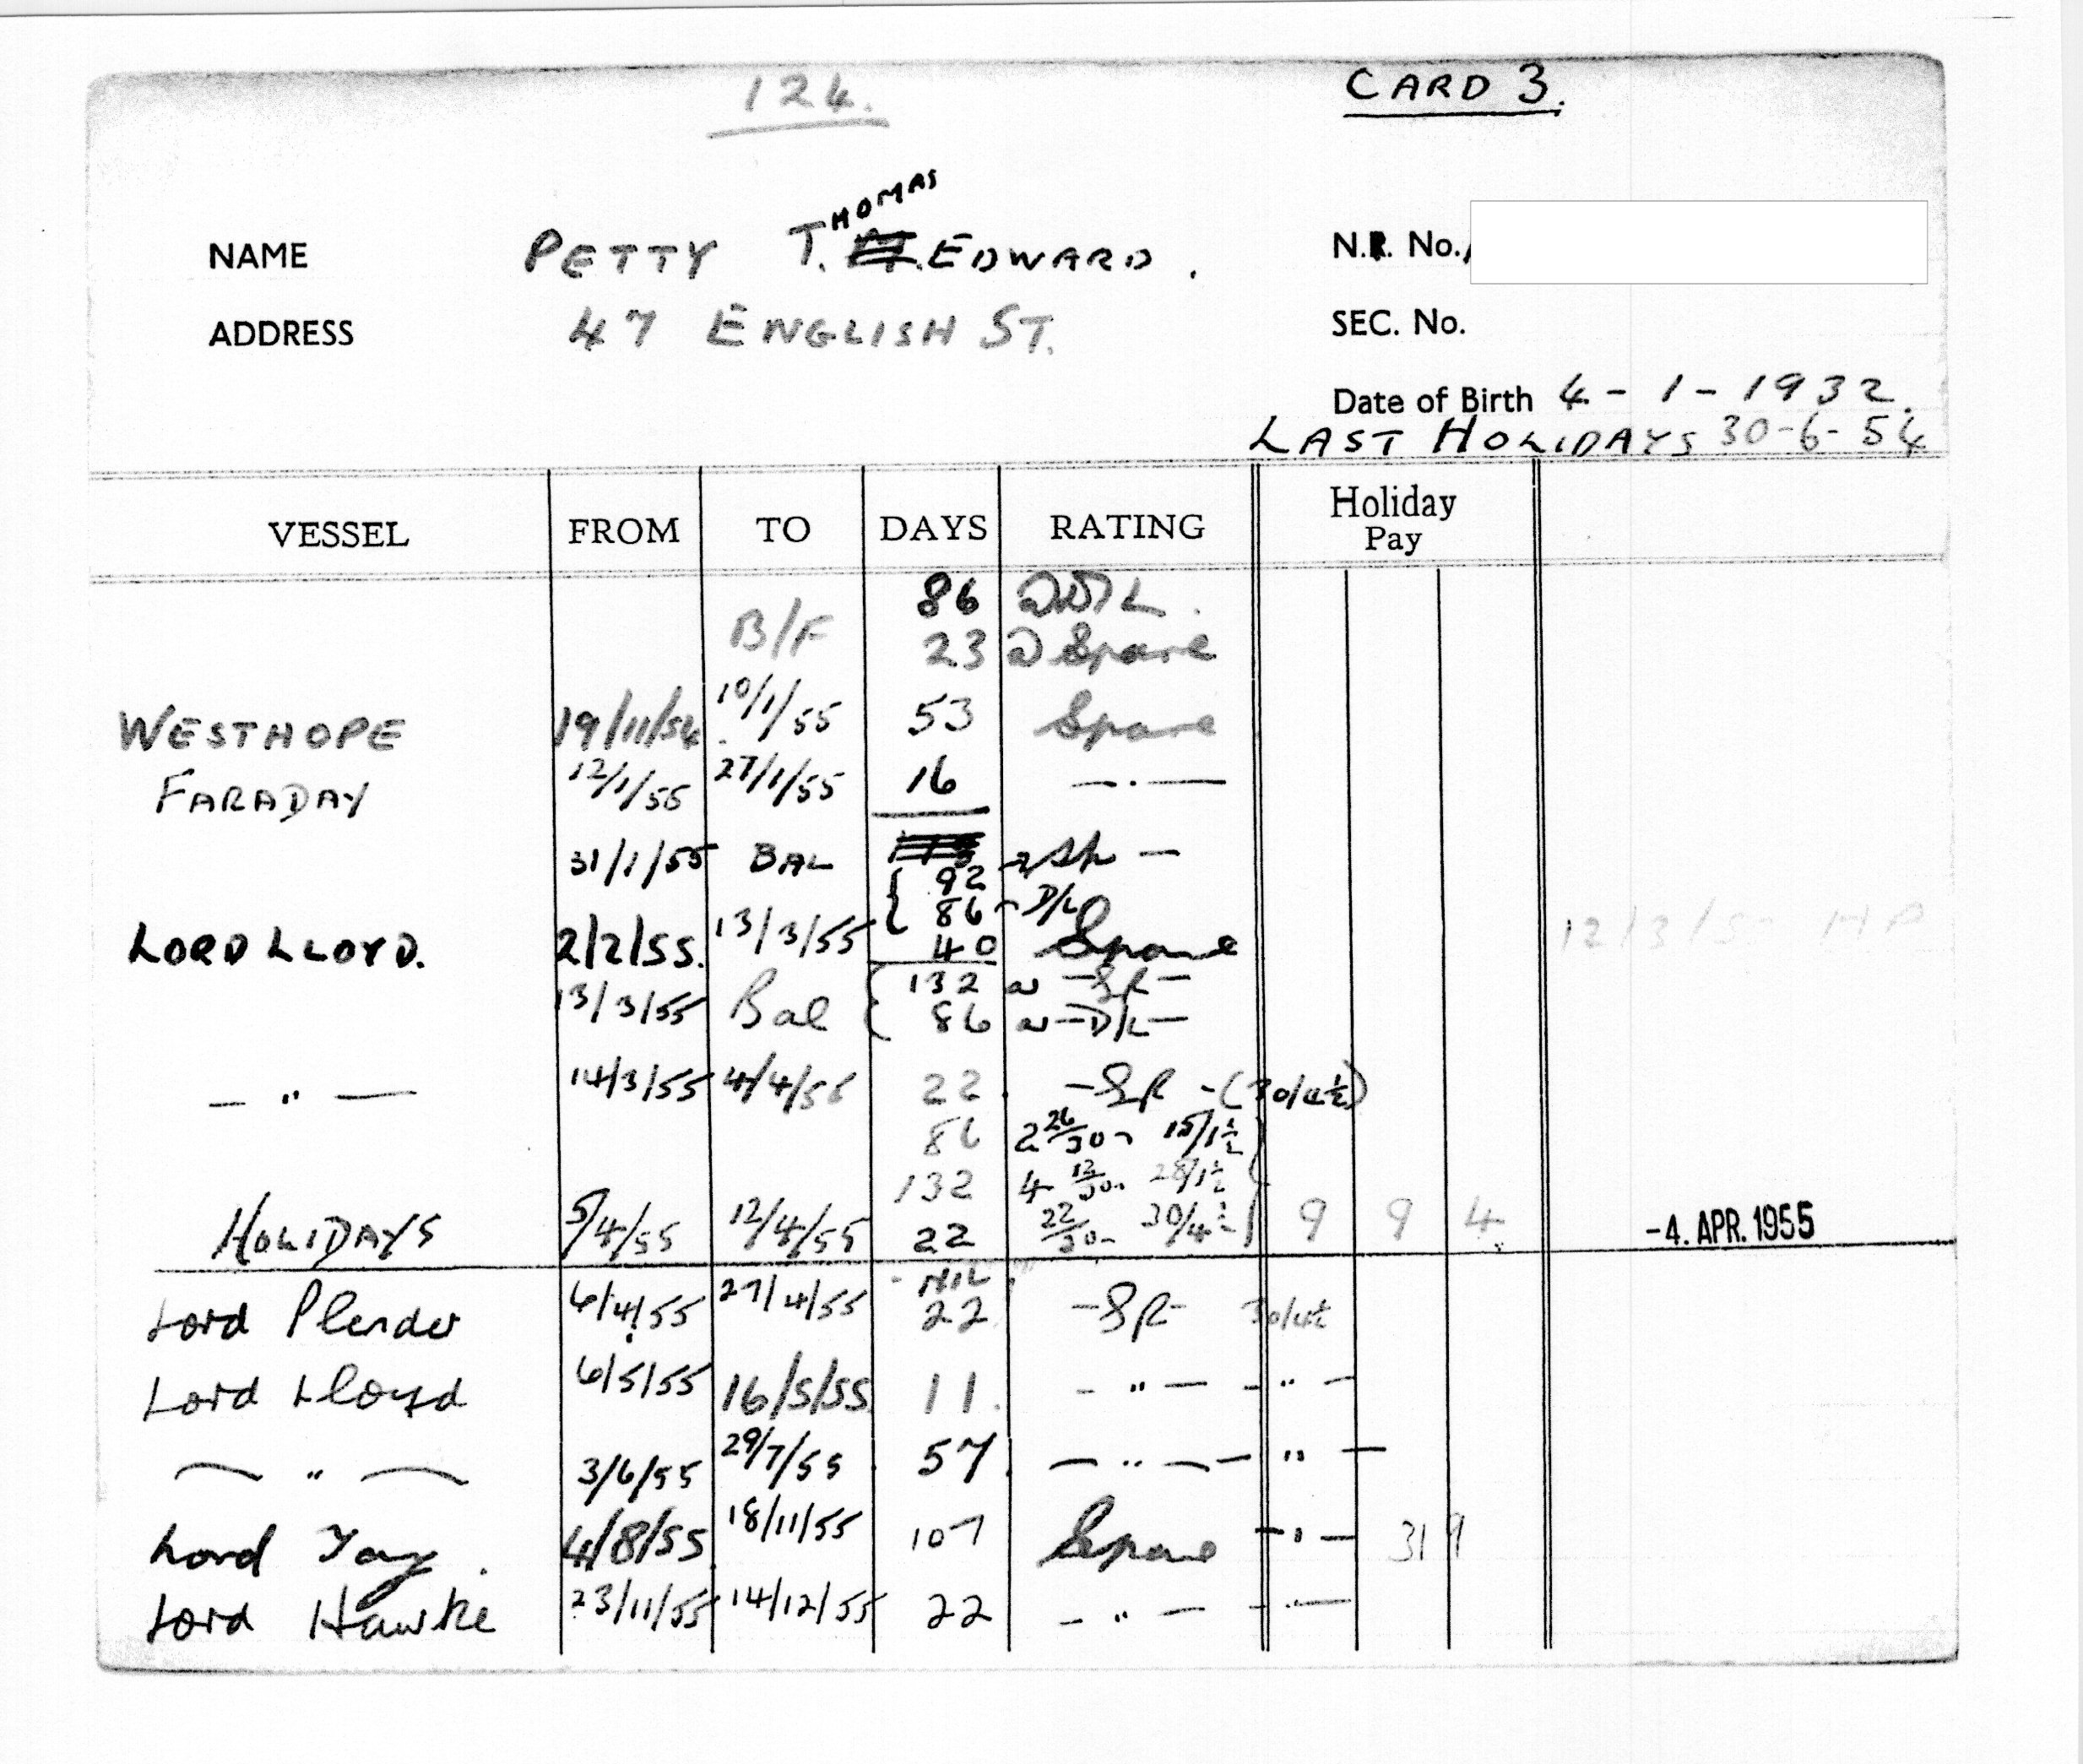 124.
CARD 3.
NAME PETTY T.HOMAS EDWARD. N.R. No.
ADDRESS 47 ENGLISH ST. SEC. No.
Date of Birth 4-1-1932.
LAST HOLIDAYS 30-6-54
VESSEL FROM TO DAYS RATING Holiday Pay
86
B/F 23 Spare
WESTHOPE 19/11/54 10/1/55 53 Spare
FARADAY 12/1/55 27/1/55 16 — . —
31/1/55 BAL
92
86 D/L
LORD LLOYD. 2/2/55. 13/3/55 40 Spare 12/3/5 HP
132 a -SP-
13/3/55 Bal 86 a -D/L-
— " — 14/3/55 4/4/55 22 -SP- (30/4½)
86 2 26/30 15/1½
132 4 12/30 28/1½
HOLIDAYS 5/4/55 12/4/55 22 22/30 30/4½ 9 9 4 -4. APR. 1955
- NIL "
Lord Plender 6/4/55 27/4/55 22 -SP- 30/4½
Lord Lloyd 6/5/55 16/5/55 11. - " — - " —
— " — 3/6/55 29/7/55 57. — " — — " —
Lord Tay. 4/8/55 18/11/55 107 Spare — " — 319
Lord Hawke 23/11/55 14/12/55 22 - " — - " —